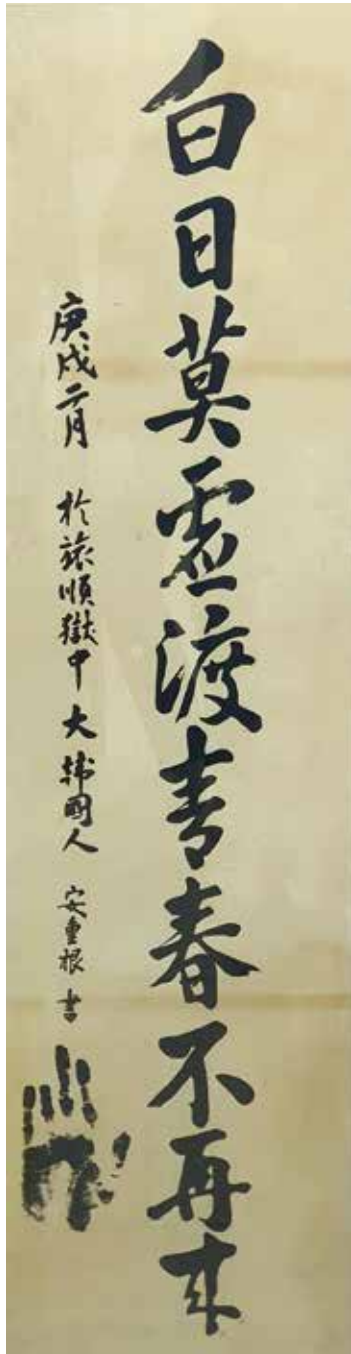 白日莫虛渡青春不再來
庚戌二月 於旅順獄中 大韓國人 安重根 書